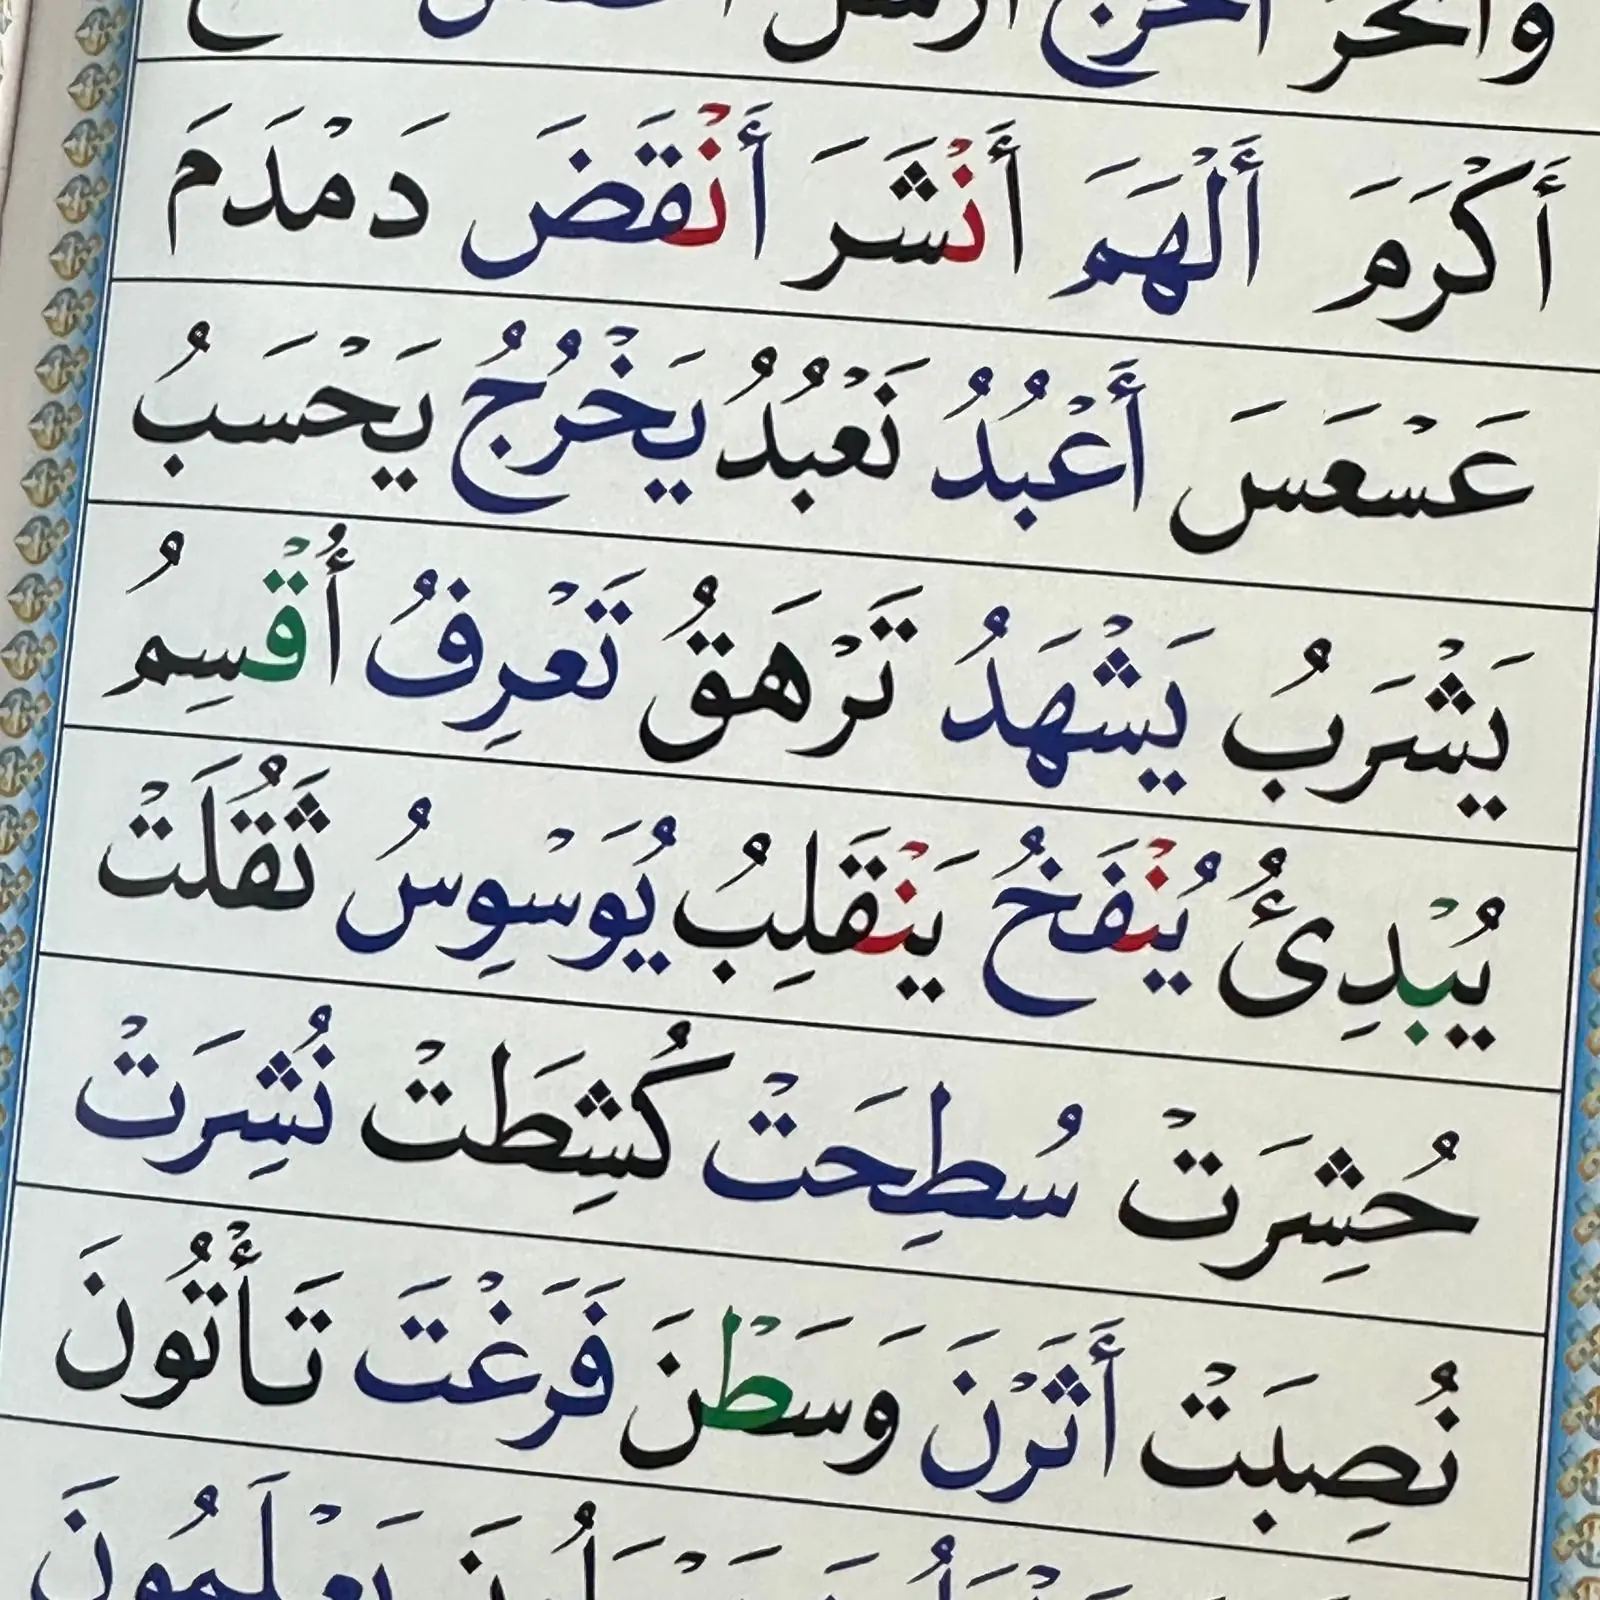 وَانْحَرْ أَخْرَجَ
أَكْرَمَ أَلْهَمَ أَنْشَرَ أَنْقَضَ دَمْدَمَ
عَسْعَسَ أَعْبُدُ نَعْبُدُ يَخْرُجُ يَحْسَبُ
يَشْرَبُ يَشْهَدُ تَرْهَقُ تَعْرِفُ أُقْسِمُ
يُبْدِئُ يُنْفَخُ يَنْقَلِبُ يُوَسْوِسُ ثَقُلَتْ
حُشِرَتْ سُطِحَتْ كُشِطَتْ نُشِرَتْ
نُصِبَتْ أَثَرْنَ وَسَطْنَ فَرَغْتَ تَأْتُونَ
يَعْلَمُونَ